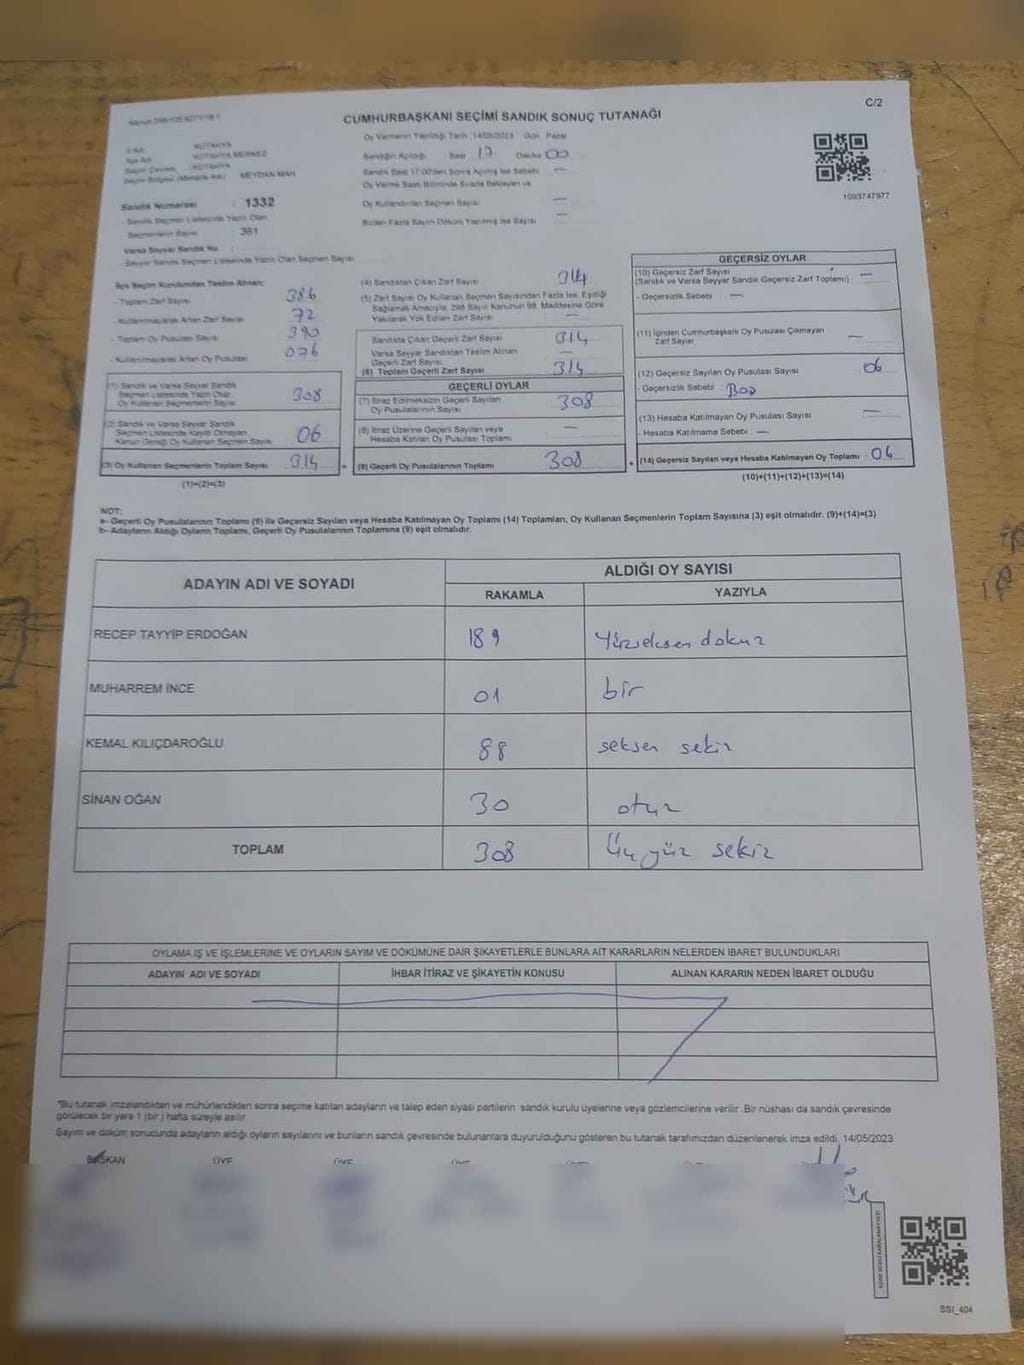 C/2
CUMHURBAŞKANI SEÇİMİ SANDIK SONUÇ TUTANAĞI
Oy Vermenin Yapıldığı Tarih 14/05/2023 Gün Pazar
Sandığın Açıldığı Saat 17 Dakika 00
Sandık Saat 17.00'den Sonra Açılmış İse Sebebi —
Oy Verme Saati Bitiminde Sırada Bekleyen ve
Oy Kullandırılan Seçmen Sayısı —
Birden Fazla Sayım Döküm Yapılmış İse Sayısı —
1093747977
İl Adı KÜTAHYA
İlçe Adı KÜTAHYA MERKEZ
Seçim Çevresi KÜTAHYA
Seçim Bölgesi (Mahalle Adı) MEYDAN MAH
Sandık Numarası : 1332
- Sandık Seçmen Listesinde Yazılı Olan
Seçmenlerin Sayısı : 381
Varsa Seyyar Sandık No
- Seyyar Sandık Seçmen Listesinde Yazılı Olan Seçmen Sayısı
İlçe Seçim Kurulundan Teslim Alınan;
- Toplam Zarf Sayısı 386
- Kullanılmayarak Artan Zarf Sayısı 72
- Toplam Oy Pusulası Sayısı 390
- Kullanılmayarak Artan Oy Pusulası 076
(1) Sandık ve Varsa Seyyar Sandık
Seçmen Listesinde Yazılı Olup
Oy Kullanan Seçmenlerin Sayısı 308
(2) Sandık ve Varsa Seyyar Sandık
Seçmen Listesinde Kayıtlı Olmayan
Kanun Gereği Oy Kullanan Seçmen Sayısı 06
(3) Oy Kullanan Seçmenlerin Toplam Sayısı 314
(1)+(2)=(3)
(4) Sandıktan Çıkan Zarf Sayısı 314
(5) Zarf Sayısı Oy Kullanan Seçmen Sayısından Fazla İse, Eşitliği
Sağlamak Amacıyla, 298 Sayılı Kanunun 98. Maddesine Göre
Yakılarak Yok Edilen Zarf Sayısı —
Sandıkta Çıkan Geçerli Zarf Sayısı 314
Varsa Seyyar Sandıktan Teslim Alınan
Geçerli Zarf Sayısı —
(6) Toplam Geçerli Zarf Sayısı 314
GEÇERLİ OYLAR
(7) İtiraz Edilmeksizin Geçerli Sayılan
Oy Pusulalarının Sayısı 308
(8) İtiraz Üzerine Geçerli Sayılan veya
Hesaba Katılan Oy Pusulası Toplamı —
(9) Geçerli Oy Pusulalarının Toplamı 308
GEÇERSİZ OYLAR
(10) Geçersiz Zarf Sayısı
(Sandık ve Varsa Seyyar Sandık Geçersiz Zarf Toplamı) : —
- Geçersizlik Sebebi : —
(11) İçinden Cumhurbaşkanı Oy Pusulası Çıkmayan
Zarf Sayısı —
(12) Geçersiz Sayılan Oy Pusulası Sayısı 06
- Geçersizlik Sebebi :
(13) Hesaba Katılmayan Oy Pusulası Sayısı —
- Hesaba Katılmama Sebebi : —
(14) Geçersiz Sayılan veya Hesaba Katılmayan Oy Toplamı : 06
(10)+(11)+(12)+(13)=(14)
NOT:
a- Geçerli Oy Pusulalarının Toplamı (9) ile Geçersiz Sayılan veya Hesaba Katılmayan Oy Toplamı (14) Toplamları, Oy Kullanan Seçmenlerin Toplam Sayısına (3) eşit olmalıdır. (9)+(14)=(3)
b- Adayların Aldığı Oyların Toplamı, Geçerli Oy Pusulalarının Toplamına (9) eşit olmalıdır.
ADAYIN ADI VE SOYADI
ALDIĞI OY SAYISI
RAKAMLA YAZIYLA
RECEP TAYYİP ERDOĞAN 189 Yüzseksen dokuz
MUHARREM İNCE 01 bir
KEMAL KILIÇDAROĞLU 88 seksen sekiz
SİNAN OĞAN 30 otuz
TOPLAM 308 Üç yüz sekiz
OYLAMA İŞ VE İŞLEMLERİNE VE OYLARIN SAYIM VE DÖKÜMÜNE DAİR ŞİKAYETLERLE BUNLARA AİT KARARLARIN NELERDEN İBARET BULUNDUKLARI
ADAYIN ADI VE SOYADI İHBAR İTİRAZ VE ŞİKAYETİN KONUSU ALINAN KARARIN NEDEN İBARET OLDUĞU
"Bu tutanak imzalandıktan ve mühürlendikten sonra seçime katılan adayların ve talep eden siyasi partilerin sandık kurulu üyelerine veya gözlemcilerine verilir. Bir nüshası da sandık çevresinde
görülecek bir yere 1 (bir ) hafta süreyle asılır.
Sayım ve döküm sonucunda adayların aldığı oyların sayılarını ve bunların sandık çevresinde bulunanlara duyurulduğunu gösteren bu tutanak tarafımızdan düzenlenerek imza edildi. 14/05/2023
BAŞKAN ÜYE ÜYE
SSI_404